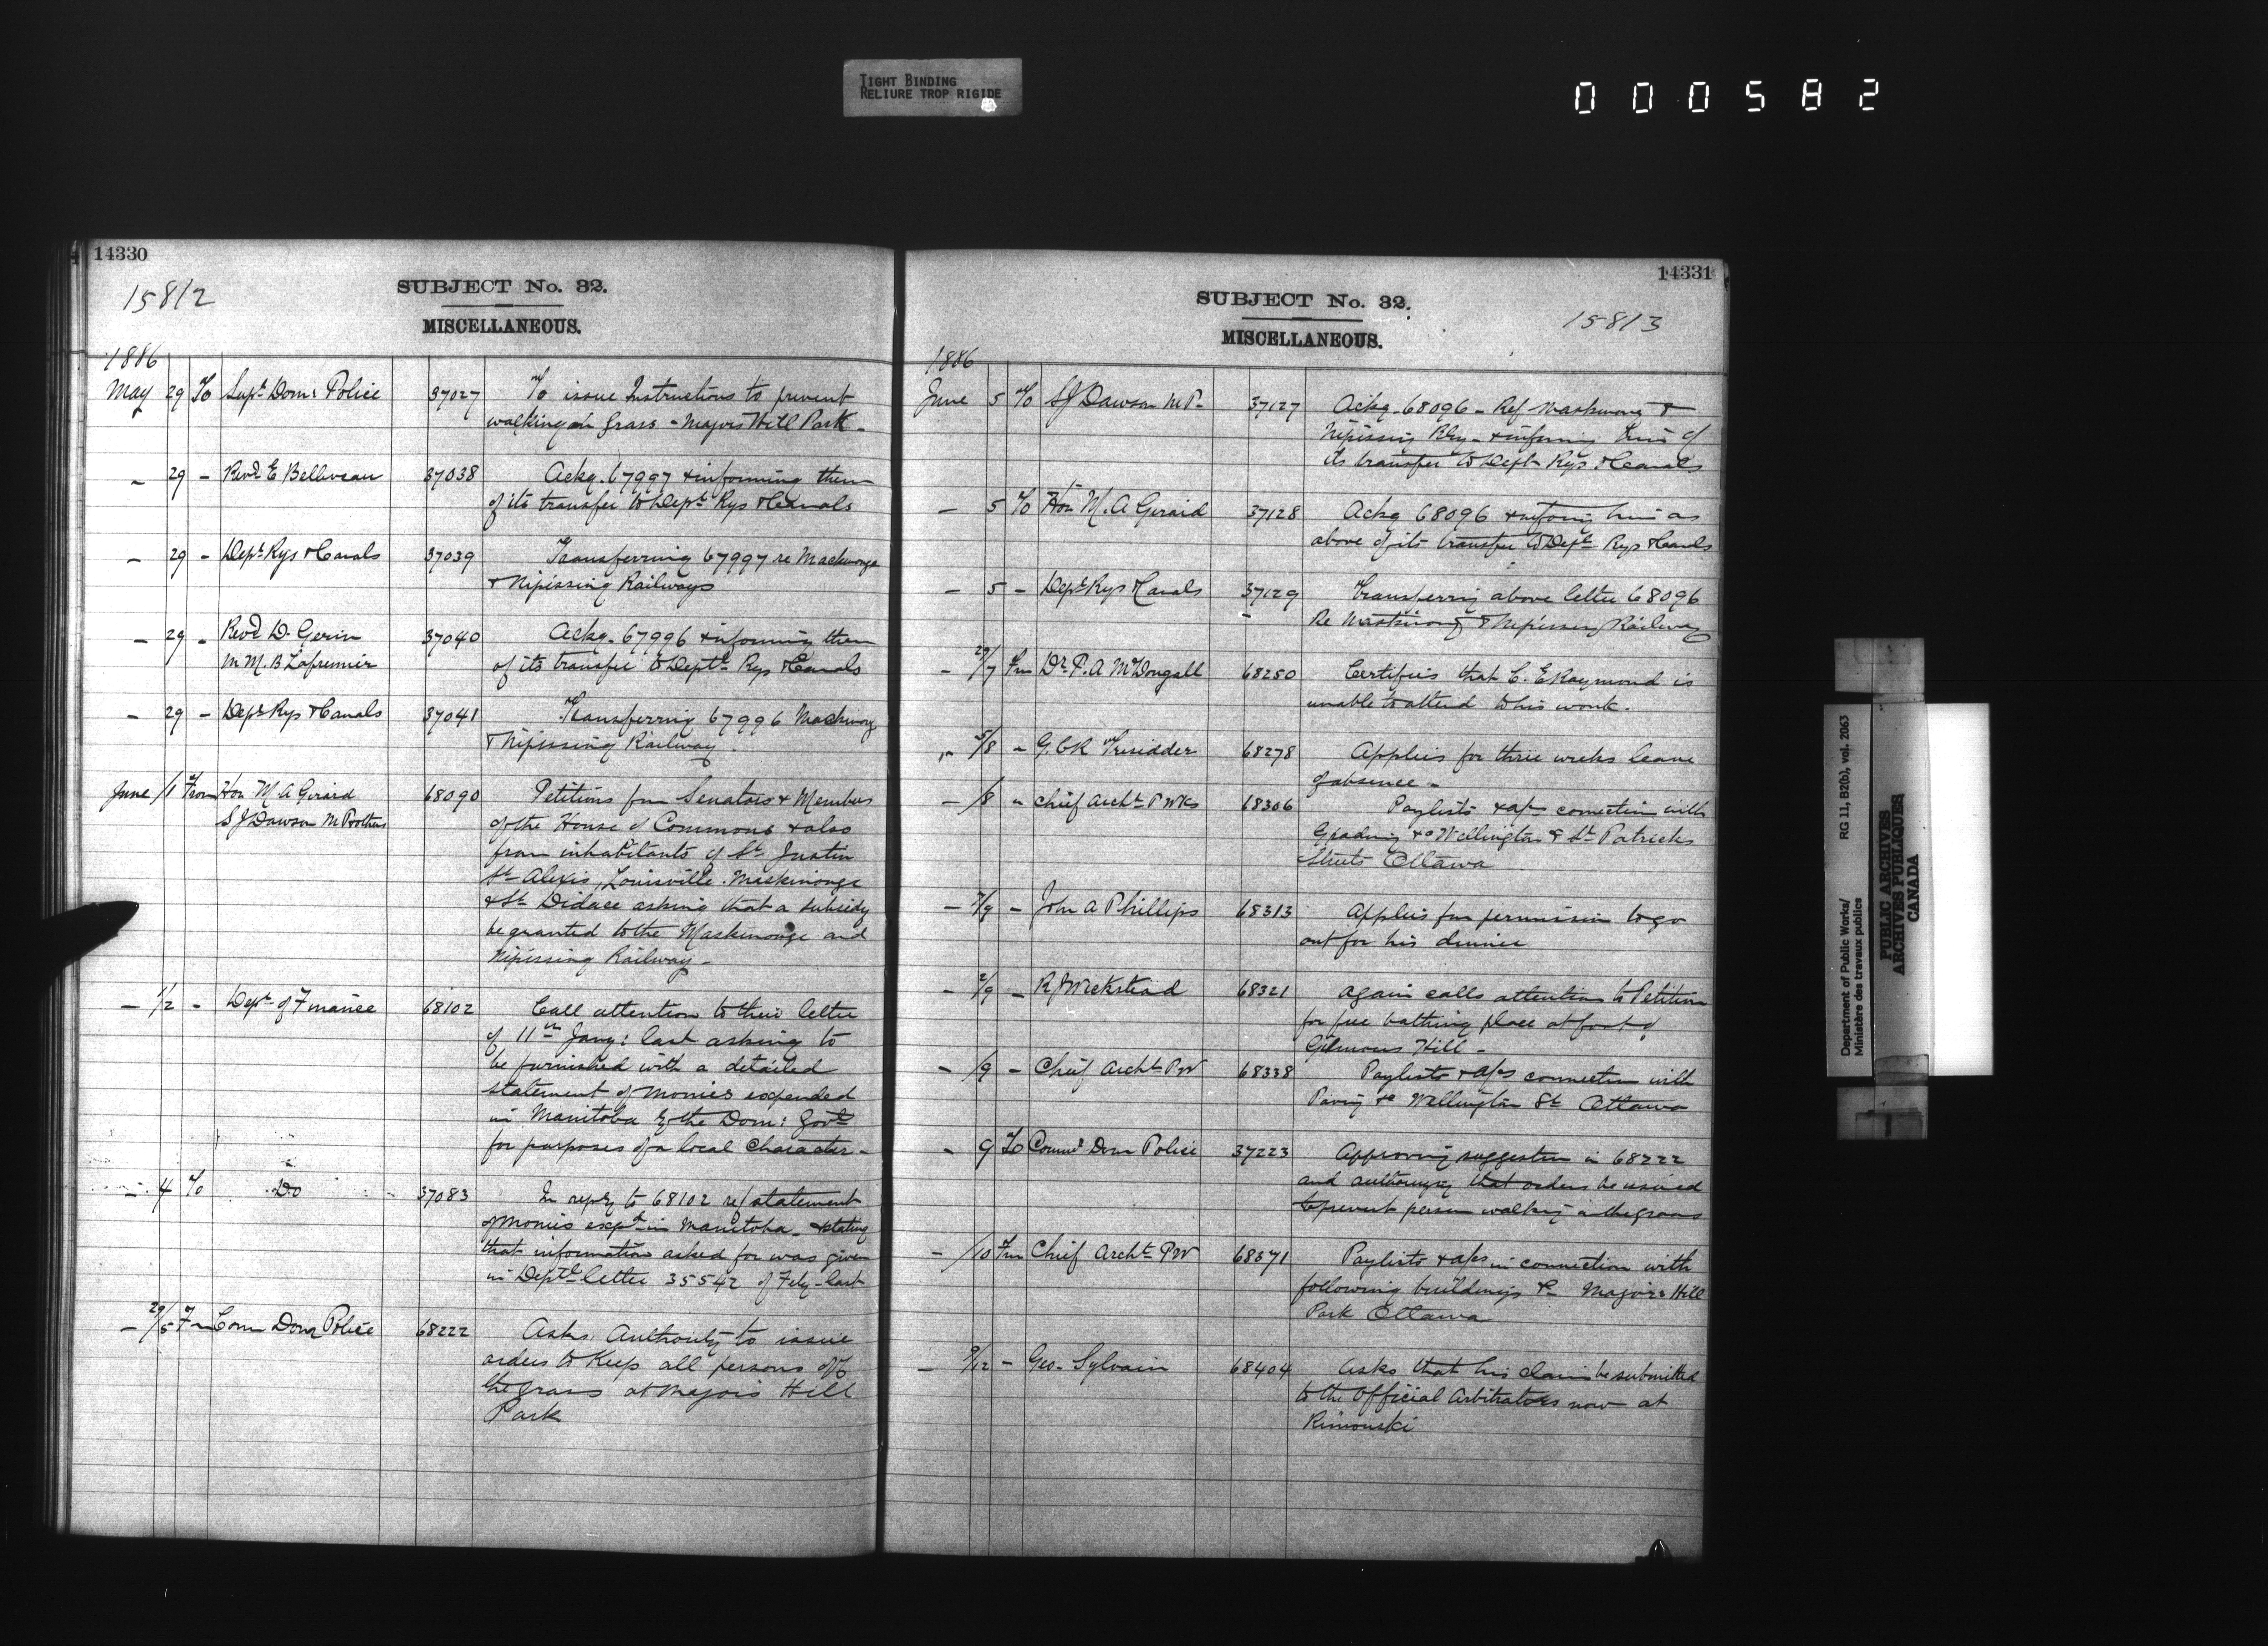 TIGHT BINDING
RELIURE TROP RIGIDE
000582
14330
15812
SUBJECT No. 32.
MISCELLANEOUS.
1886
May 29 To Supt Dom: Police 37027 To issue Instructions to prevent
walking on grass - Majors Hill Park -
- 29 - Revd E Belleveau 37038 Ackg. 67997 & informing them
of its transfer to Dept Rys & Canals
- 29 - Dept Rys & Canals 37039 Transferring 67997 re Maskinonge
& Nipissing Railways
- 29 - Revd D. Gerin 37040 Ackg. 67996 & informing them
M M. B Lafrenier of its transfer to Dept Rys & Canals
- 29 - Dept Rys & Canals 37041 Transferring 67996 Maskinonge
& Nipissing Railway.
June /1 From Hon M A Girard 68090 Petitions from Senators & Members
S J Dawson M P & others of the House of Commons & also
from inhabitants of St Justin
St Alexis, Louisville. Maskinonge
& St Didace asking that a subsidy
be granted to the Maskinonge and
Nipissing Railway -
- 1/2 - Dept of Finance 68102 Call attention to their letter
of 11th Jany: last asking to
be furnished with a detailed
statement of monies expended
in Manitoba by the Dom: Govt
for purposes of a local character -
- 4 To Do 37083 In reply to 68102 ref statement
of monies expd in Manitoba - & stating
that information asked for was given
in Deptl letter 35542 of Feby last
- 29/5 Fm Com Dom Police 68222 Asks Authority to issue
orders to keep all persons off
the grass at Majors Hill
Park
14331
SUBJECT No. 32.
15813
MISCELLANEOUS.
1886
June 5 To S J Dawson M P - 37127 Ackg. 68096 - Ref Maskinong &
Nipissing Rly - & informing him of
its transfer to Dept Rys. & Canals
- 5 To Hon M. A Girard 37128 Ackg 68096 & informing him as
above of its transfer to Dept Rys & Canals
- 5 - Dept Rys & Canals 37129 Transferring above letter 68096
Re Maskinong & Nipissing Railway
- 29/7 Fm Dr P. A McDougall 68250 Certifies that C. E Raymond is
unable to attend to his work.
- 5/8 - G. C R Tresidder 68278 Applies for three weeks leave
of absence -
- /8 - Chief Archt P Wks 68306 Paylists & a/cs connection with
Grading &c Wellington & St Patricks
Streets Ottawa
- 7/9 - John A Phillips 68313 Applies for permission to go
out for his dinner
- 2/9 - R J Wicksteed 68321 Again calls attention to Petition
for free bathing place at foot of
Gilmours Hill -
- /9 - Chief Archt P W 68338 Paylists & a/cs connection with
Paving &c Wellington St Ottawa
- 9 To Commr Dom Police 37223 Approving suggestion in 68222
and authorizing that orders be issued
to prevent person walking on the grass
- /10 Fm Chief Archt P W 68371 Paylists & a/cs in connection with
following buildings &c Majors Hill
Park Ottawa
- 9/12 - Geo. Sylvain 68404 Asks that his claim be submitted
to the Official Arbitrators now at
Rimouski
Department of Public Works/ RG 11, B2(b), vol. 2063
Ministère des travaux publics
PUBLIC ARCHIVES
ARCHIVES PUBLIQUES
CANADA